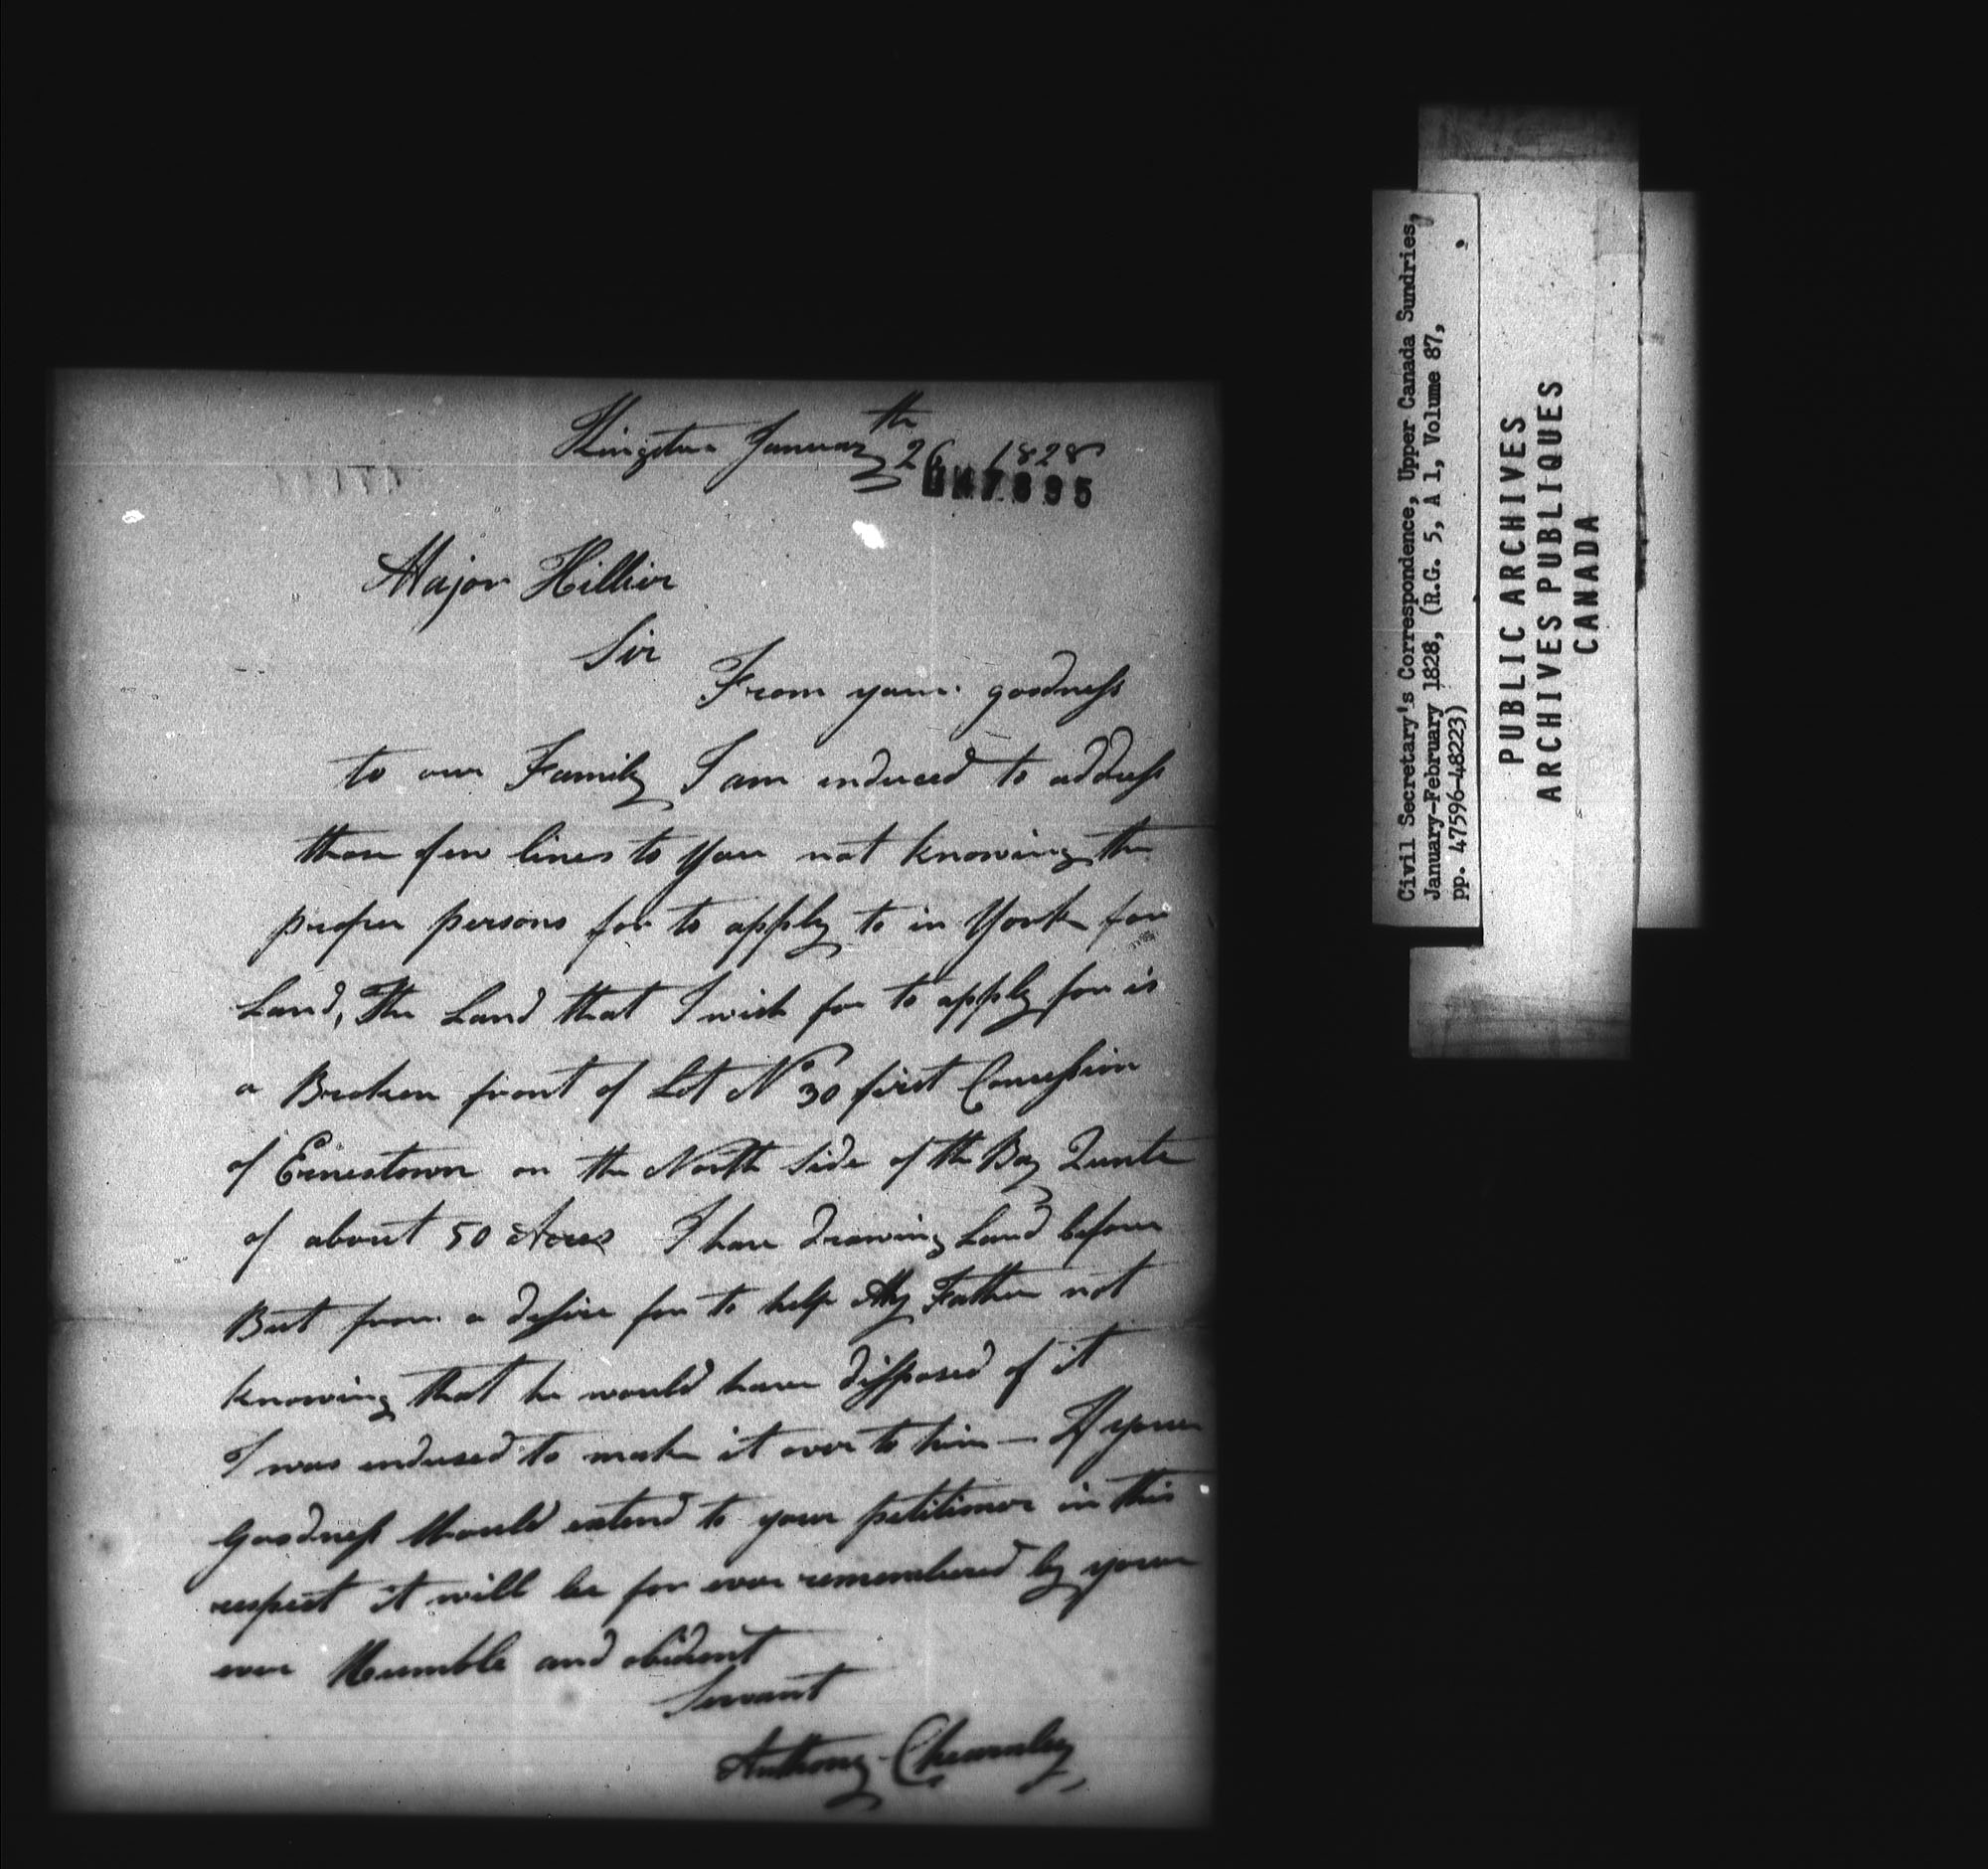 Kingston January 26th 1828
Major Hillier
Sir
From your goodness
to our Family I am induced to address
these few lines to You not knowing the
proper persons for to apply to in York for
Land, The Land that I wish for to apply for is
a Broken front of Lot No 30 first Concession
of Ernestown on the North Side of the Bay Quinte
of about 50 Acres I have drawing Land before
But from a desire for to help My Father not
knowing that he would have disposed of it
I was indused to make it over to him — If your
Goodness Should extend to your petitioner in this
respect it will be for ever remembered by your
ever Humble and obident
Servant
Anthony Chearnley
Civil Secretary's Correspondence, Upper Canada Sundries,
January-February 1828, (R.G. 5, A 1, Volume 87,
pp. 47596-48223)
PUBLIC ARCHIVES
ARCHIVES PUBLIQUES
CANADA